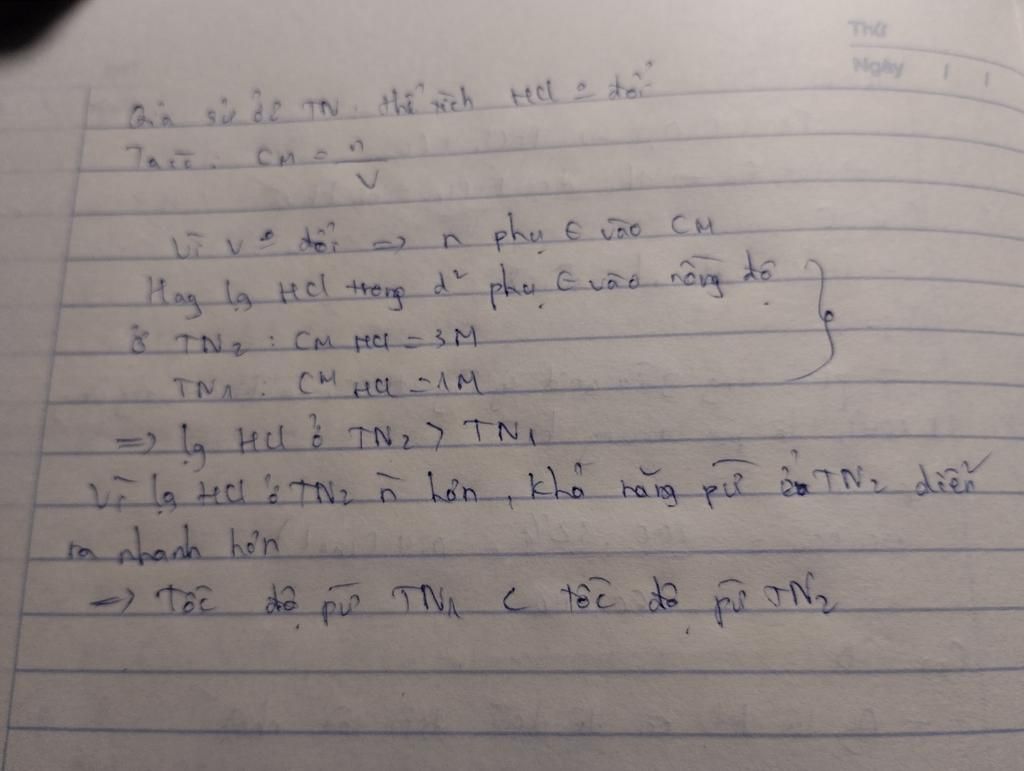 Thứ
Ngày / /
Giả sử ở 2 TN, thể tích HCl o đổi
Ta có: CM = n/V
Vì V o đổi => n phụ ∈ vào CM
Hay lg HCl trong d² phụ ∈ vào nồng độ
ở TN2 : CM HCl = 3M
TN1 : CM HCl = 1M
=> lg HCl ở TN2 > TN1
Vì lg HCl ở TN2 n̄ hơn, khả năng pứ ở TN2 diễn
ra nhanh hơn
=> tốc độ pứ TN1 < tốc độ pứ TN2